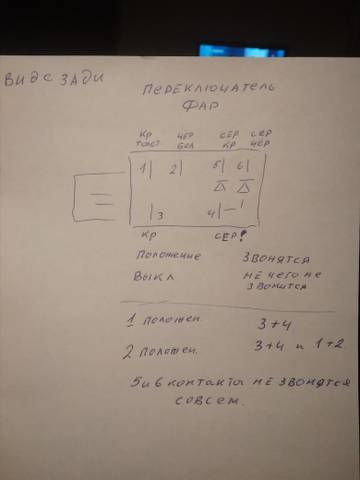 ВИД СЗАДИ
ПЕРЕКЛЮЧАТЕЛЬ
ФАР
КР ЧЁР СЕР СЕР
ТОЛСТ БЕЛ КР ЧЁР
1 2 5 6
3 4
КР СЕР!
ПОЛОЖЕНИЕ ЗВОНЯТСЯ
ВЫКЛ НЕ ЧЕГО НЕ
ЗВОНИТСЯ
1 ПОЛОЖЕН. 3+4
2 ПОЛОЖЕН. 3+4 и 1+2
5 и 6 КОНТАКТЫ НЕ ЗВОНЯТСЯ
СОВСЕМ.